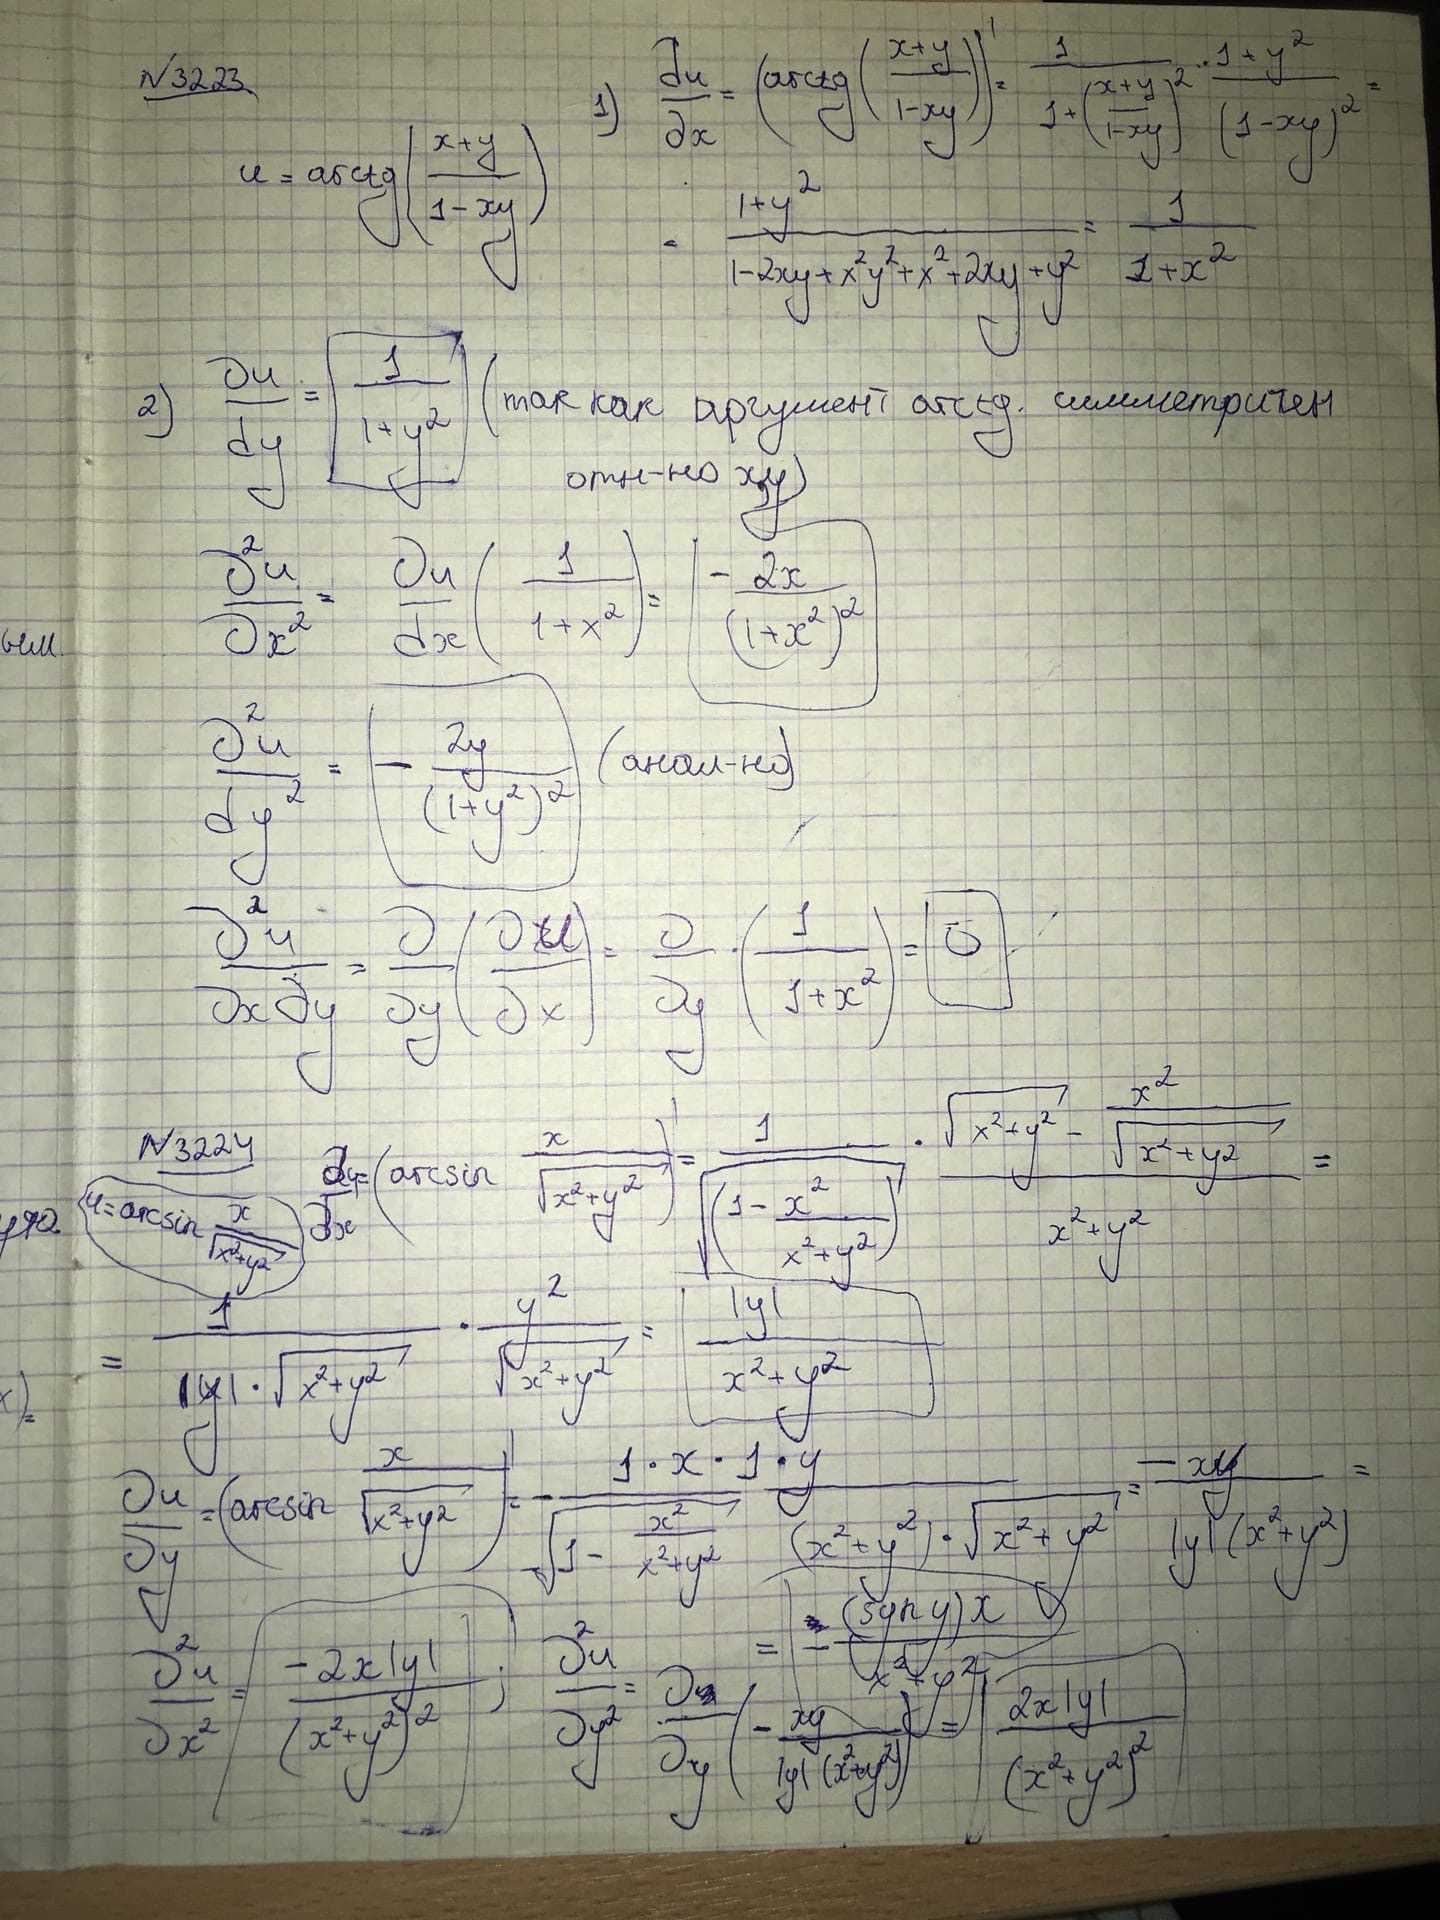 N3223
u = arctg((x+y)/(1-xy))
1) du/∂x = (arctg((x+y)/(1-xy)))' = 1/(1+((x+y)/(1-xy))²) · (1+y²)/(1-xy)² =
= (1+y²)/(1-2xy+x²y²+x²+2xy+y²) = 1/(1+x²)
2) ∂u/dy = 1/(1+y²) (так как аргумент arctg. симметричен
отн-но xy)
∂²u/∂x² = ∂u/dx (1/(1+x²)) = -2x/(1+x²)²
∂²u/dy² = -2y/(1+y²)² (анал-но)
∂²u/∂x∂y = ∂/∂y (∂u/∂x) = ∂/∂y · (1/(1+x²)) = 0
N3224
u=arcsin x/√(x²+y²)
du/∂x = (arcsin x/√(x²+y²))' = 1/√(1 - x²/(x²+y²)) · (√(x²+y²) - x²/√(x²+y²))/(x²+y²) =
= 1/(|y|·√(x²+y²)) · y²/√(x²+y²) = |y|/(x²+y²)
∂u/∂y = (arcsin x/√(x²+y²))' = - (1·x·1·y)/(√(1 - x²/(x²+y²)) (x²+y²)·√(x²+y²)) = -xy/(|y|(x²+y²)) =
= - (sgn y)x/(x²+y²)
∂²u/∂x² = -2x|y|/(x²+y²)² ; ∂²u/∂y² = ∂/∂y (- xy/(|y|(x²+y²))) = 2x|y|/(x²+y²)²